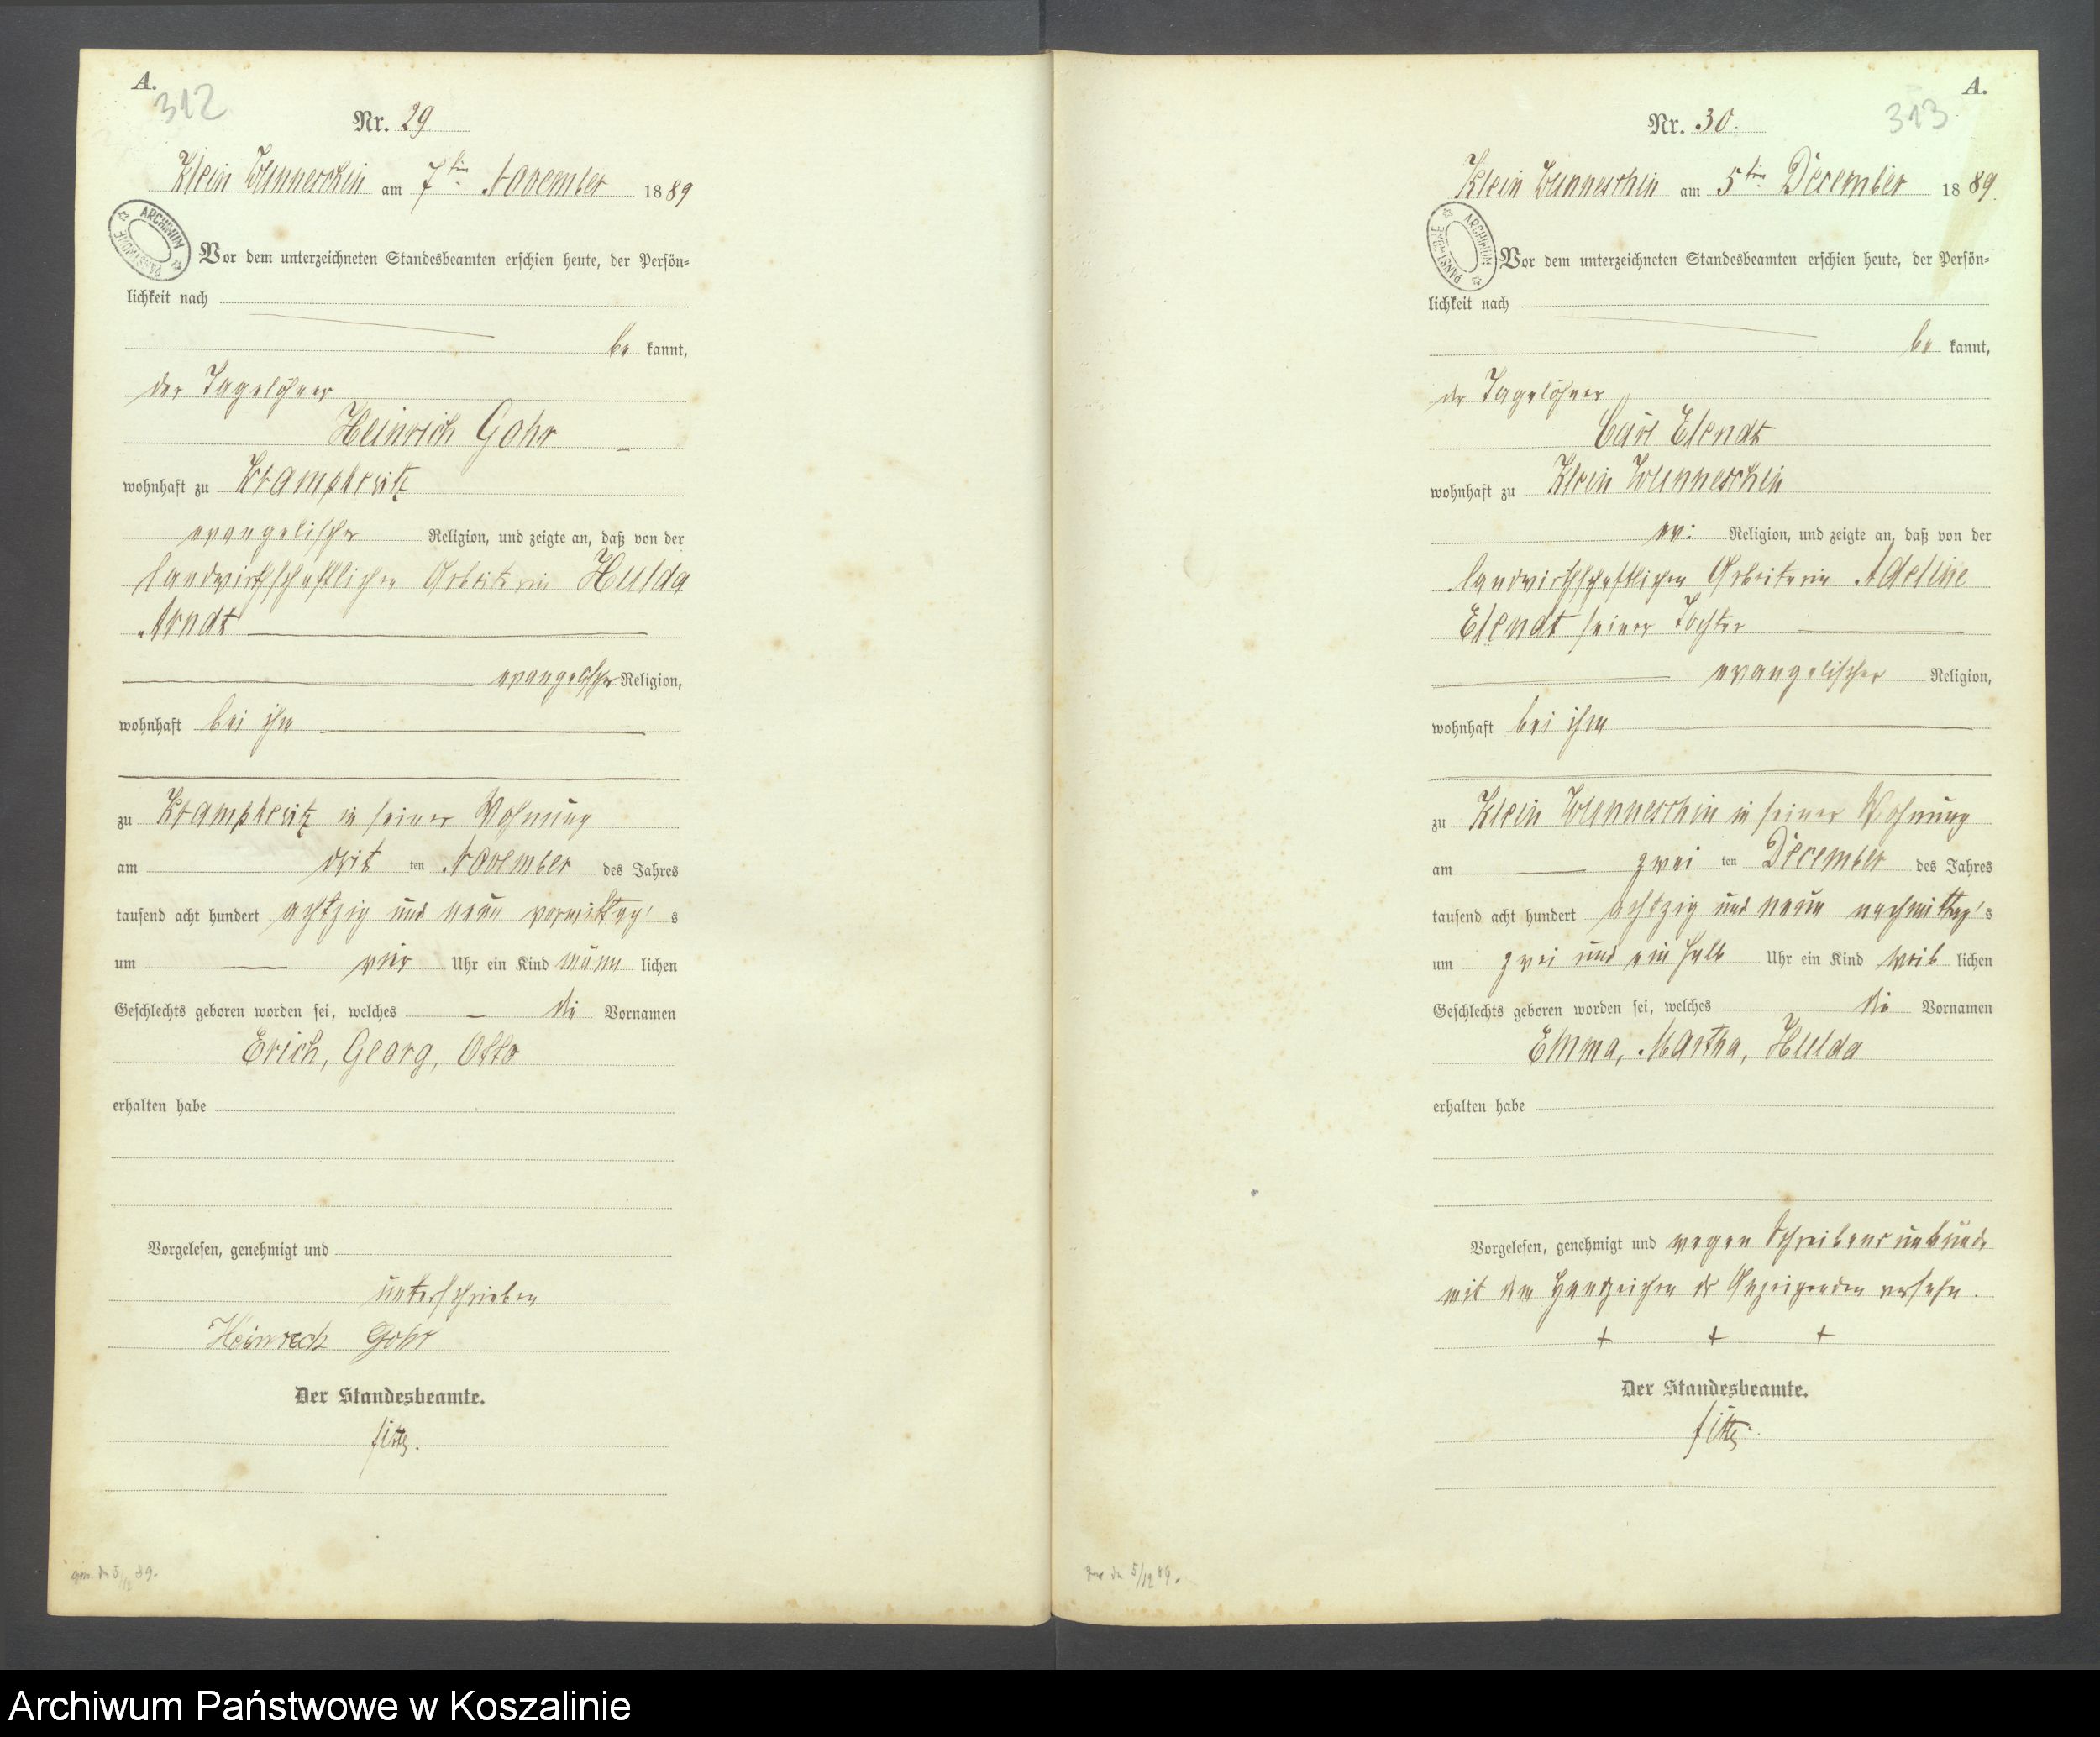 A.
312
Nr. 29.
Klein Wunneschin am 7ten November 1889
ARCHIWUM PAŃSTWOWE
Vor dem unterzeichneten Standesbeamten erschien heute, der Persön=
lichkeit nach
be kannt,
der Tagelöhner
Heinrich Gohr
wohnhaft zu Krampkewitz
evangelischer Religion, und zeigte an, daß von der
landwirthschaftlichen Arbeiterin Hulda
Arndt
evangelischer Religion,
wohnhaft bei ihm
zu Krampkewitz in seiner Wohnung
am drit ten November des Jahres
tausend acht hundert achtzig und neun vormittag's
um vier Uhr ein Kind männ lichen
Geschlechts geboren worden sei, welches die Vornamen
Erich, Georg, Otto
erhalten habe
Vorgelesen, genehmigt und
unterschrieben
Heinrich Gohr
Der Standesbeamte.
5/12 89.
A.
313
Nr. 30.
Klein Wunneschin am 5ten December 1889.
ARCHIWUM PAŃSTWOWE
Vor dem unterzeichneten Standesbeamten erschien heute, der Persön=
lichkeit nach
be kannt,
der Tagelöhner
Carl Elendt
wohnhaft zu Klein Wunneschin
ev: Religion, und zeigte an, daß von der
landwirthschaftlichen Arbeiterin Adeline
Elendt seiner Tochter
evangelischer Religion,
wohnhaft bei ihm
zu Klein Wunneschin in seiner Wohnung
am zwei ten December des Jahres
tausend acht hundert achtzig und neun nachmittag's
um zwei und ein halb Uhr ein Kind weib lichen
Geschlechts geboren worden sei, welches die Vornamen
Emma, Martha, Hulda
erhalten habe
Vorgelesen, genehmigt und wegen Schreibensunkunde
mit dem Handzeichen des Anzeigenden versehn.
+ + +
Der Standesbeamte.
5/12 89.
Archiwum Państwowe w Koszalinie